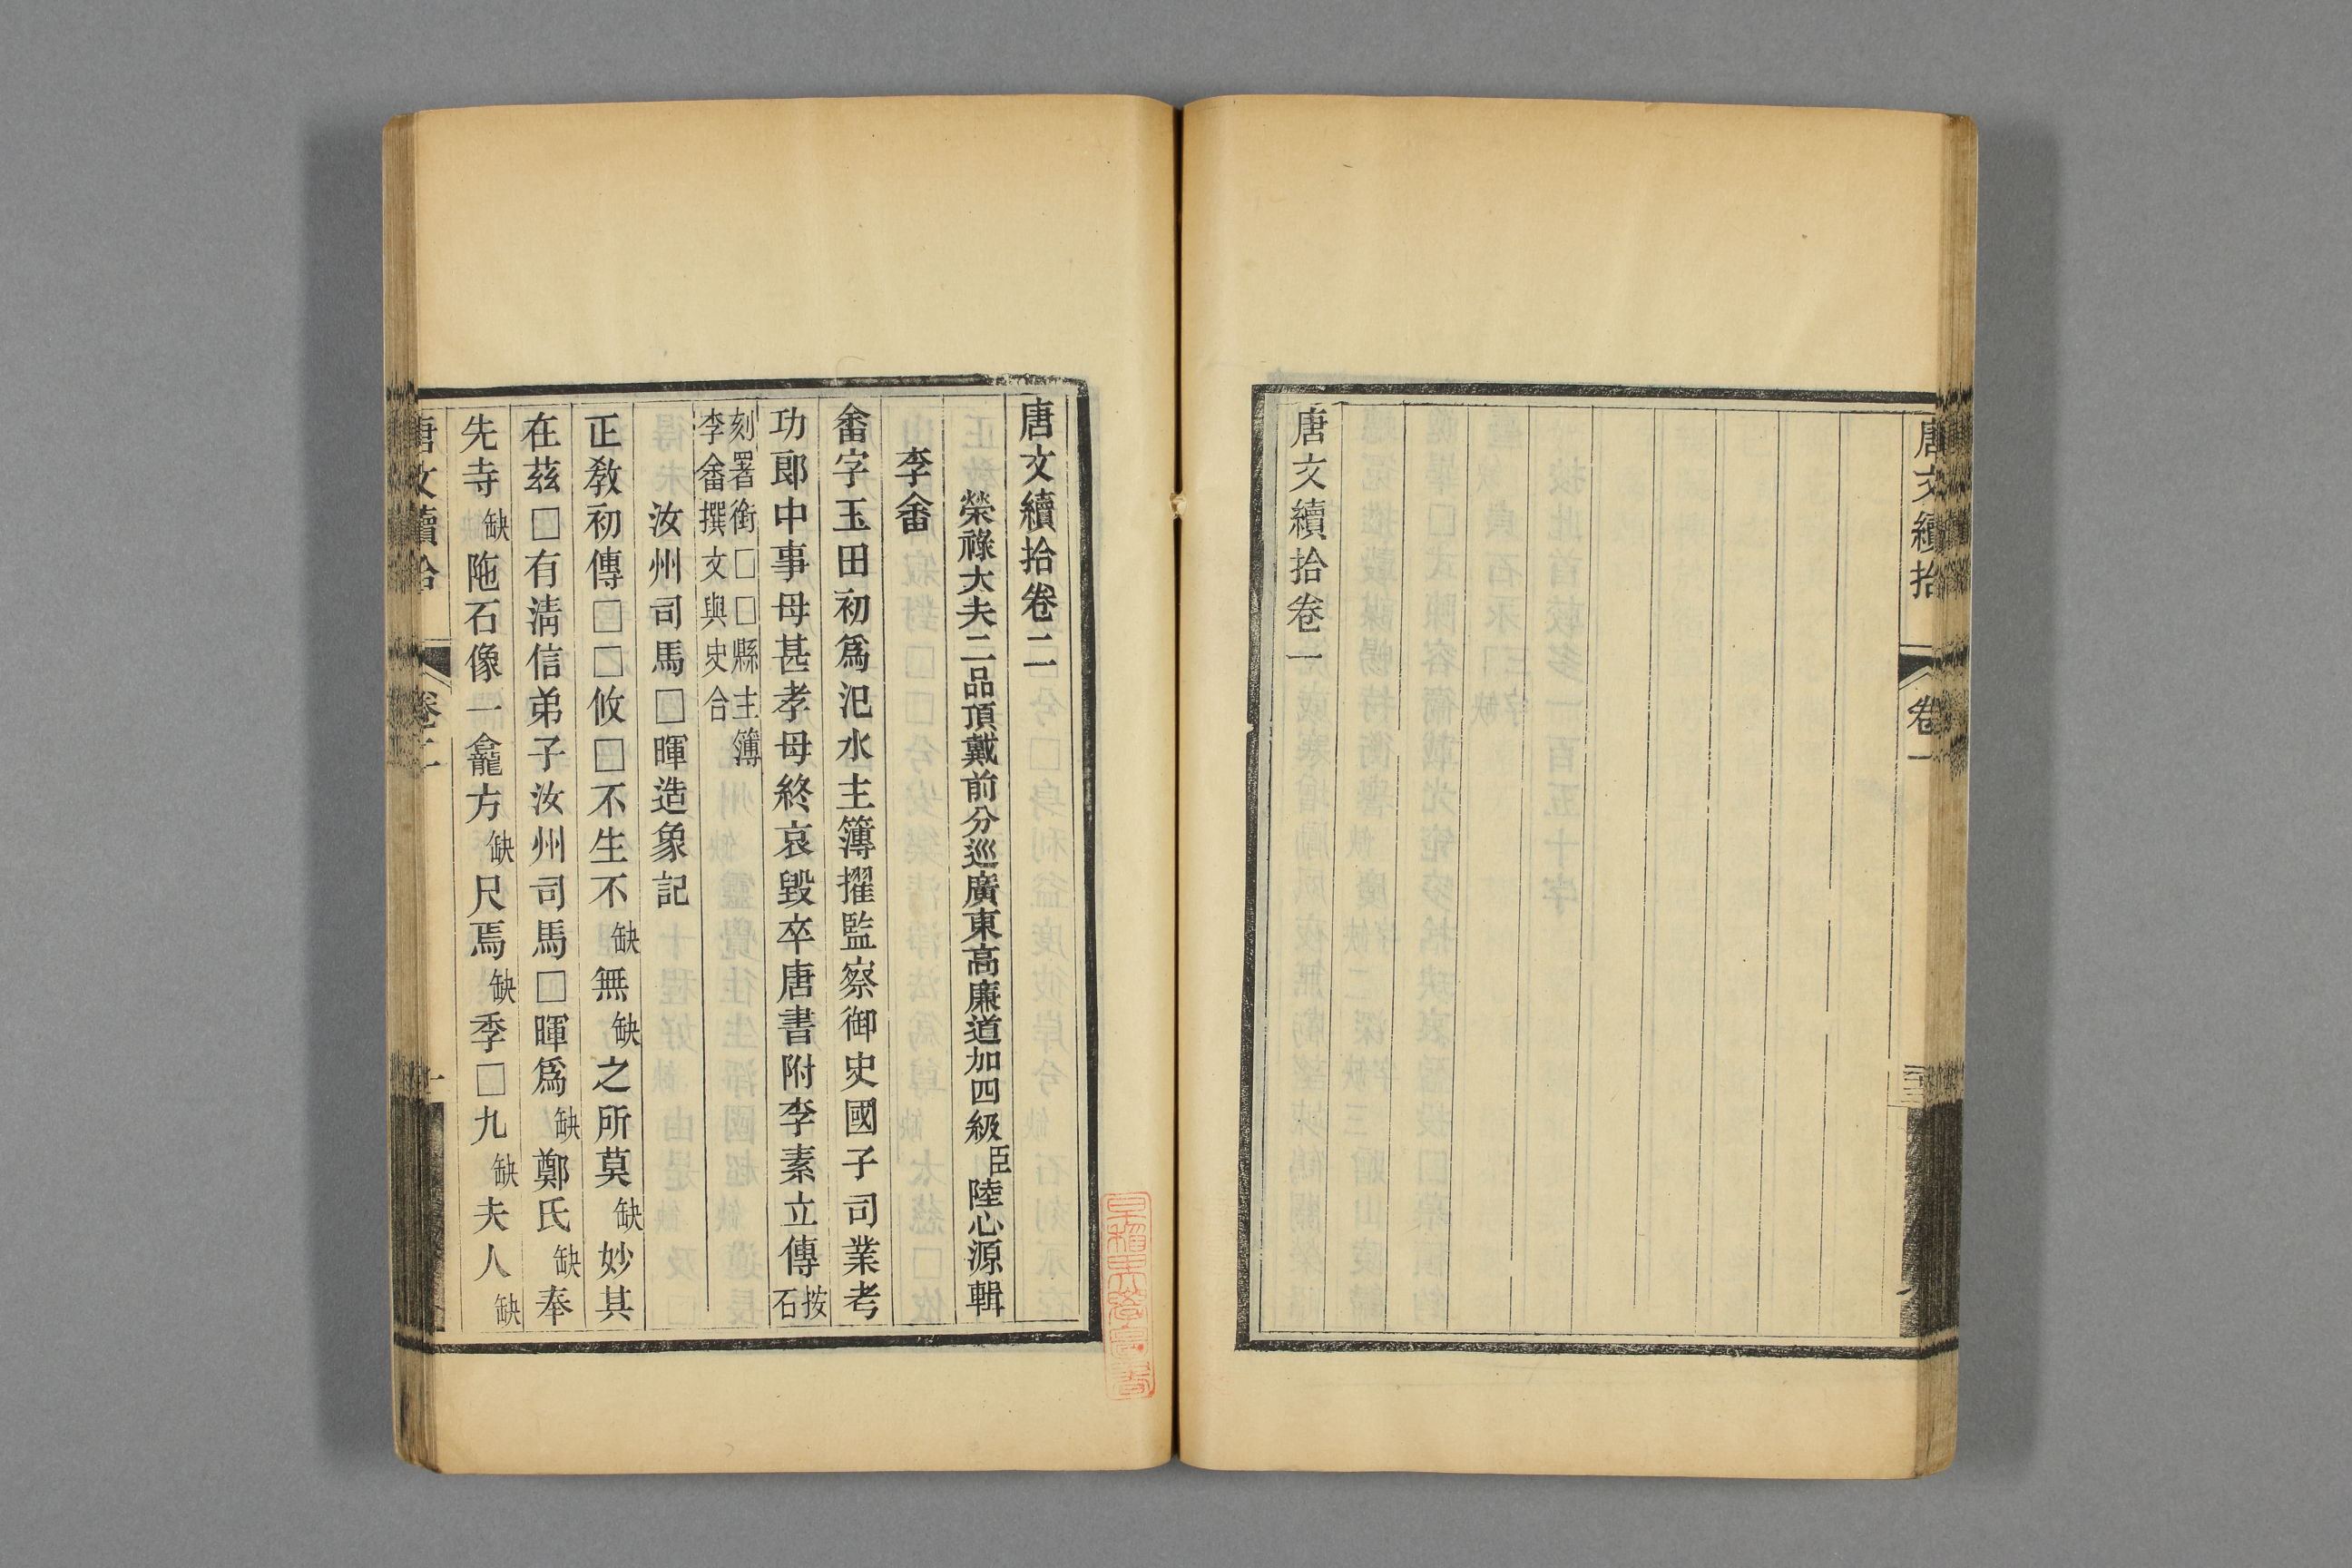 唐文續拾卷一
唐文續拾 卷一
唐文續拾卷二
榮祿大夫二品頂戴前分巡廣東高廉道加四級臣陸心源輯
李畬
畬字玉田初爲汜水主簿擢監察御史國子司業考
功郎中事母甚孝母終哀毀卒唐書附李素立傳按石
刻署銜□□縣主簿
李畬撰文與史合
汝州司馬□暉造象記
正教初傳□□攸□不生不缺無缺之所莫缺妙其
在茲□有淸信弟子汝州司馬□暉爲缺鄭氏缺奉
先寺缺陁石像一龕方缺尺焉缺季□九缺夫人缺
唐文續拾 卷二 一